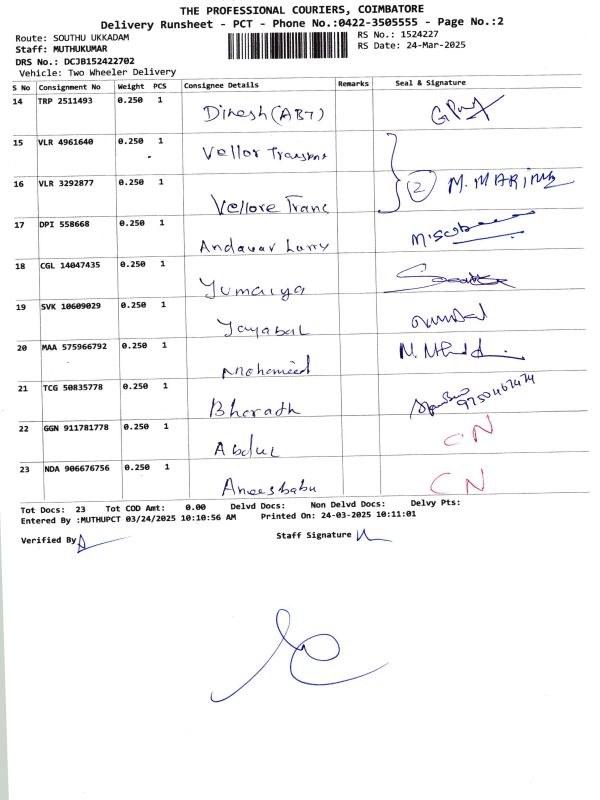 THE PROFESSIONAL COURIERS, COIMBATORE
Delivery Runsheet - PCT - Phone No.:0422-3505555 - Page No.:2
Route: SOUTHU UKKADAM
RS No.: 1524227
Staff: MUTHUKUMAR
RS Date: 24-Mar-2025
DRS No.: DCJB152422702
Vehicle: Two Wheeler Delivery
S No Consignment No Weight PCS Consignee Details Remarks Seal & Signature
14 TRP 2511493 0.250 1 Dinesh (ABT)
15 VLR 4961640 0.250 1 Vellor Transport
16 VLR 3292877 0.250 1 Vellore Trans 2 M. MARIMU
17 DPI 558668 0.250 1 Andavar Lorry
18 CGL 14047435 0.250 1 Yumaiya
19 SVK 10609029 0.250 1 Jayabal
20 MAA 575966792 0.250 1 Mohameed
21 TCG 50835778 0.250 1 Bharath 9750467474
22 GGN 911781778 0.250 1 Abdul CN
23 NDA 906676756 0.250 1 Aneesbabu CN
Tot Docs: 23 Tot COD Amt: 0.00 Delvd Docs: Non Delvd Docs: Delvy Pts:
Entered By :MUTHUPCT 03/24/2025 10:10:56 AM Printed On: 24-03-2025 10:11:01
Verified By
Staff Signature